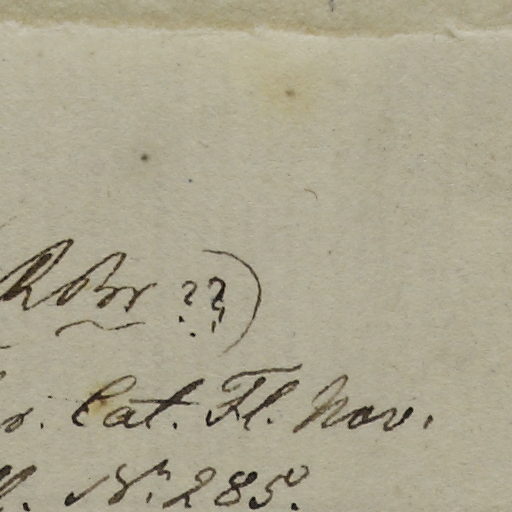 RBr ??)
r. Cat. Fl. Nov.
Nr. 285.